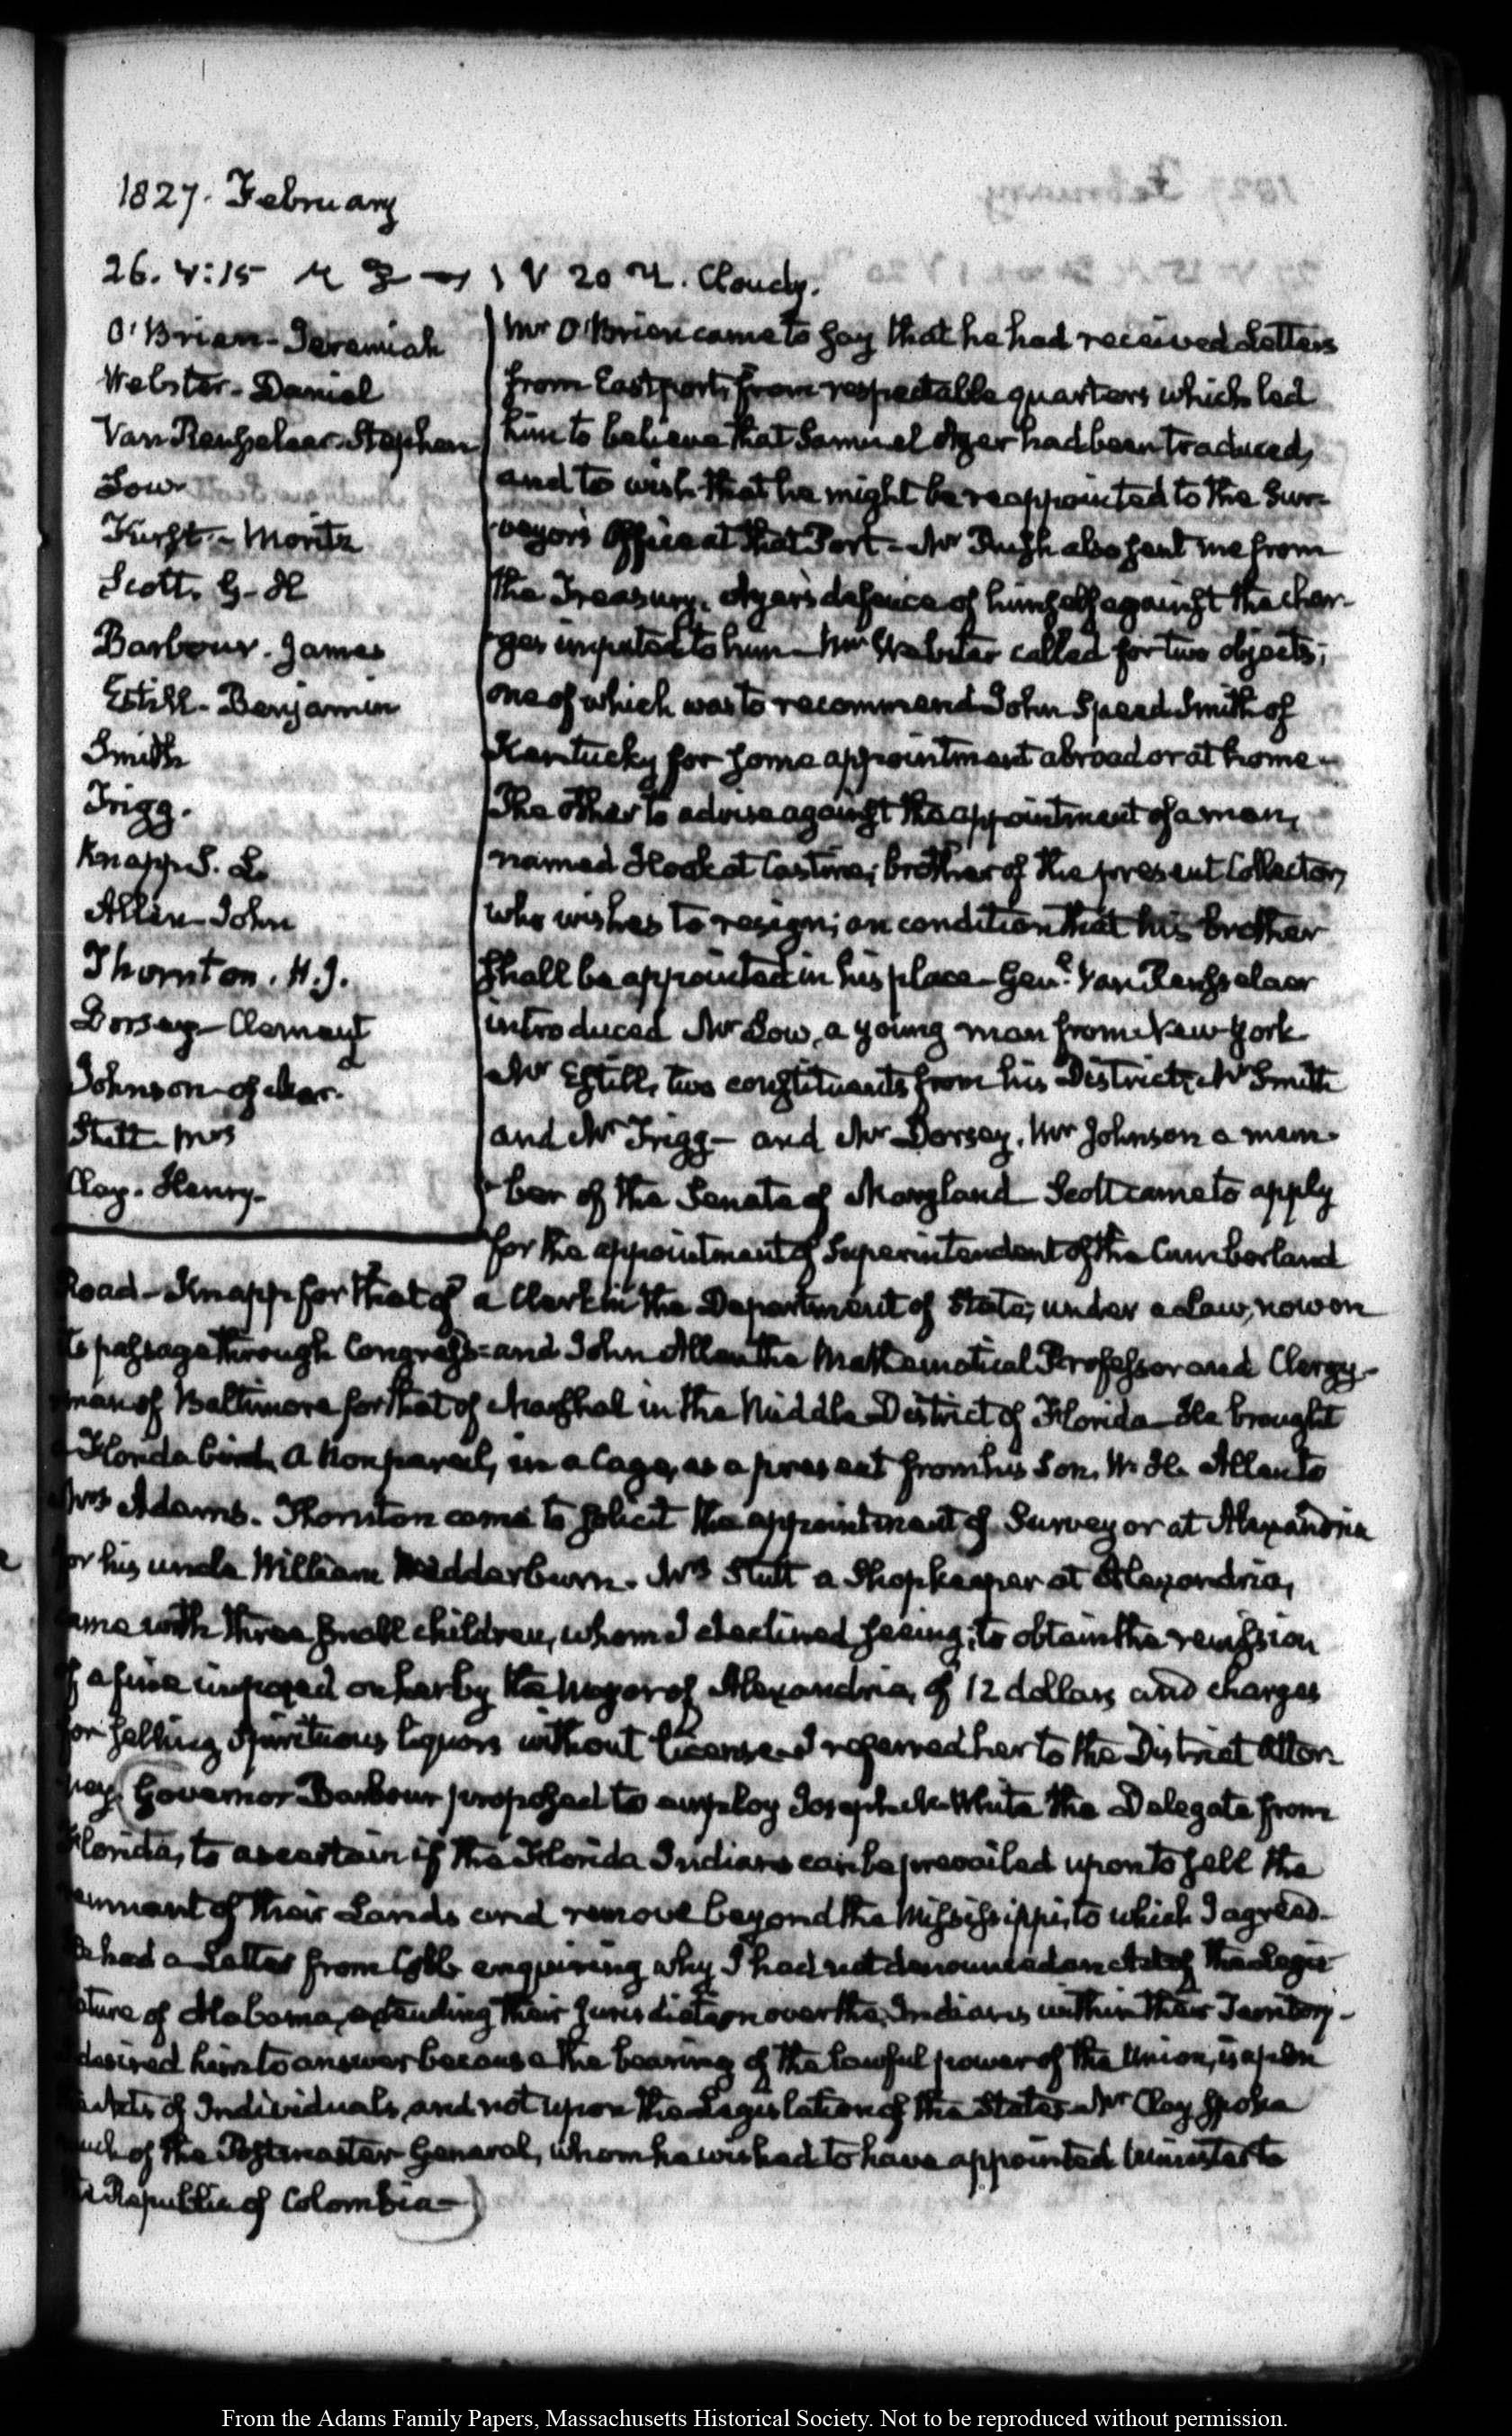 1827. February
26. V:15 Cloudy.
O'Brien - Jeremiah
Webster - Daniel
Van Rensselaer - Stephen
Low
Furst - Moritz
Scott. G. H
Barbour. James
Estill - Benjamin
Smith
Trigg.
Knapp S. L.
Allen - John
Thornton. H. J.
Dorsey - Clement
Johnson - of Mar.
Stutt - Mrs
Clay. Henry -
Mr O'Brien came to say that he had received Letters
from Eastport, from respectable quarters which led
him to believe that Samuel Ayer had been traduced,
and to wish that he might be reappointed to the Sur-
veyor's Office at that Port - Mr Rush also sent me from
the Treasury, Ayer's defence of himself against the char-
ges imputed to him - Mr Webster called for two objects;
one of which was to recommend John Speed Smith of
Kentucky for some appointment abroad or at home -
The other to advise against the appointment of a man,
named Hook at Castine; brother of the present Collector,
who wishes to resign; on condition that his brother
shall be appointed in his place - Genl. Van Rensselaer
introduced Mr Low, a young man from New York
Mr Estill, two constituents from his District, Mr Smith
and Mr Trigg - and Mr Dorsey, Mr Johnson a mem-
ber of the Senate of Maryland Scott came to apply
for the appointment of Superintendent of the Cumberland
Road - Knapp for that of a Clerk in the Department of State; under a Law, now on
its passage through Congress - and John Allen the Mathematical Professor and Clergy-
man of Baltimore for that of Marshal in the Middle District of Florida - He brought
a Florida bird, a Nonpareil, in a Cage, as a present from his Son, W. H. Allen to
Mrs Adams. Thornton came to solicit the appointment of Surveyor at Alexandria
for his uncle William Wedderburn. Mrs Stutt a Shopkeeper at Alexandria,
came with three small children, whom I declined seeing; to obtain the remission
of a fine imposed on her by the Mayor of Alexandria, of 12 dollars and charges
for selling Spirituous liquors without license. I referred her to the District Attor
ney. Governor Barbour proposed to employ Joseph M. White the Delegate from
Florida, to ascertain if the Florida Indians can be prevailed upon to sell the
remnant of their Lands and remove beyond the Mississippi, to which I agreed -
He had a Letter from Cobb enquiring why I had not denounced an Act of the Legis
lature of Alabama, extending their jurisdiction over the Indians within their Territory -
I desired him to answer because the bearing of the lawful power of the Union, is upon
the Acts of Individuals, and not upon the Legislation of the States - Mr Clay spoke
much of the Postmaster General, whom he wished to have appointed Minister to
the Republic of Colombia -
From the Adams Family Papers, Massachusetts Historical Society. Not to be reproduced without permission.